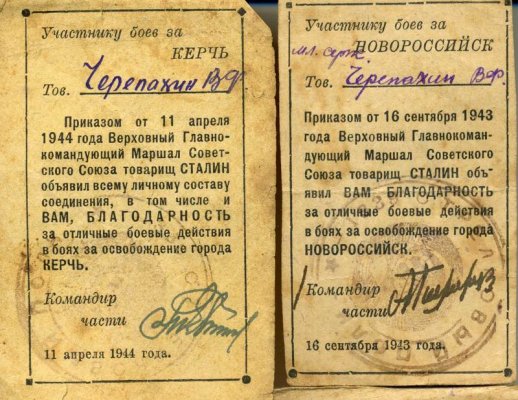 Участнику боев за
КЕРЧЬ
Тов. Черепахин В.Ф.
Приказом от 11 апреля
1944 года Верховный Главно-
командующий Маршал Совет-
ского Союза товарищ СТАЛИН
объявил всему личному составу
соединения, в том числе и
ВАМ, БЛАГОДАРНОСТЬ
за отличные боевые действия
в боях за освобождение города
КЕРЧЬ.
Командир
части
11 апреля 1944 года.
Участнику боев за
НОВОРОССИЙСК
мл. серж.
Тов. Черепахин В.Ф.
Приказом от 16 сентября 1943
года Верховный Главнокоман-
дующий Маршал Советского
Союза товарищ СТАЛИН объ-
явил ВАМ БЛАГОДАРНОСТЬ
за отличные боевые действия
в боях за освобождение города
НОВОРОССИЙСК.
Командир
части
16 сентября 1943 года.